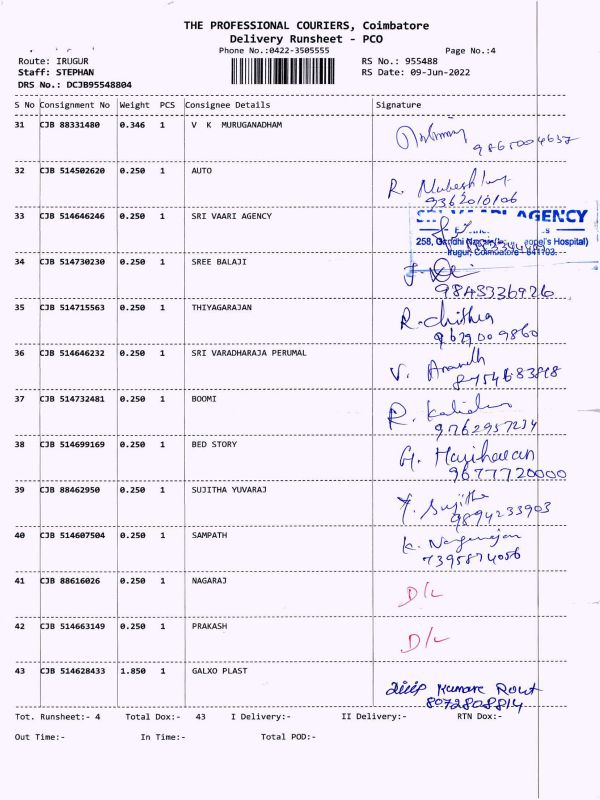 THE PROFESSIONAL COURIERS, Coimbatore
Delivery Runsheet - PCO
Phone No.:0422-3505555 Page No.:4
Route: IRUGUR RS No.: 955488
Staff: STEPHAN RS Date: 09-Jun-2022
DRS No.: DCJB95548804
S No Consignment No Weight PCS Consignee Details Signature
31 CJB 88331480 0.346 1 V K MURUGANADHAM
9865004637
32 CJB 514502620 0.250 1 AUTO R.
9362010106
33 CJB 514646246 0.250 1 SRI VAARI AGENCY
SRI VAARI AGENCY
258, Gandhi Hospital)
Irugur, Coimbatore - 641103.
34 CJB 514730230 0.250 1 SREE BALAJI
9843336926
35 CJB 514715563 0.250 1 THIYAGARAJAN R. chithra
9629009860
36 CJB 514646232 0.250 1 SRI VARADHARAJA PERUMAL V. Ananth
8754683898
37 CJB 514732481 0.250 1 BOOMI R.
9762957234
38 CJB 514699169 0.250 1 BED STORY G. Hariharan
9677720000
39 CJB 88462950 0.250 1 SUJITHA YUVARAJ Y. Sujitha
9894233903
40 CJB 514607504 0.250 1 SAMPATH K. Nagarajan
7395874056
41 CJB 88616026 0.250 1 NAGARAJ D/L
42 CJB 514663149 0.250 1 PRAKASH D/L
43 CJB 514628433 1.850 1 GALXO PLAST Dilip Kumar Rout
8072808814
Tot. Runsheet:- 4 Total Dox:- 43 I Delivery:- II Delivery:- RTN Dox:-
Out Time:- In Time:- Total POD:-